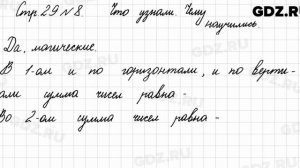 Стр. 29 № 8. Что узнали. Чему научились.
GDZ.RU
Да, магические.
В 1-ом и по горизонтали, и по верти-
али сумма чисел равна -
Во 2-ом сумма чисел равна -